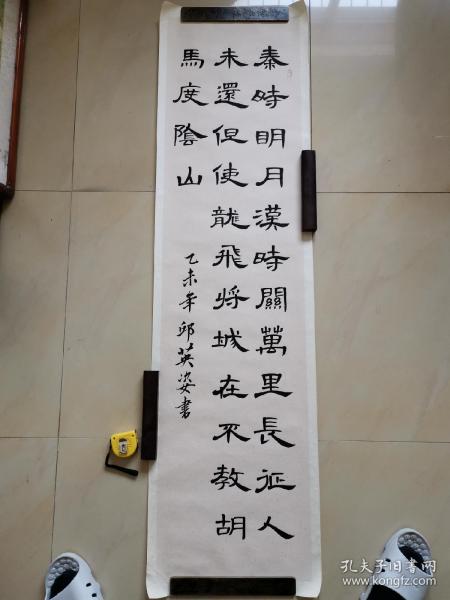 秦時明月漢時關萬里長征人
未還但使龍飛將城在不教胡
馬度陰山
乙未年邱英姿書
孔夫子旧书网
www.kongfz.com